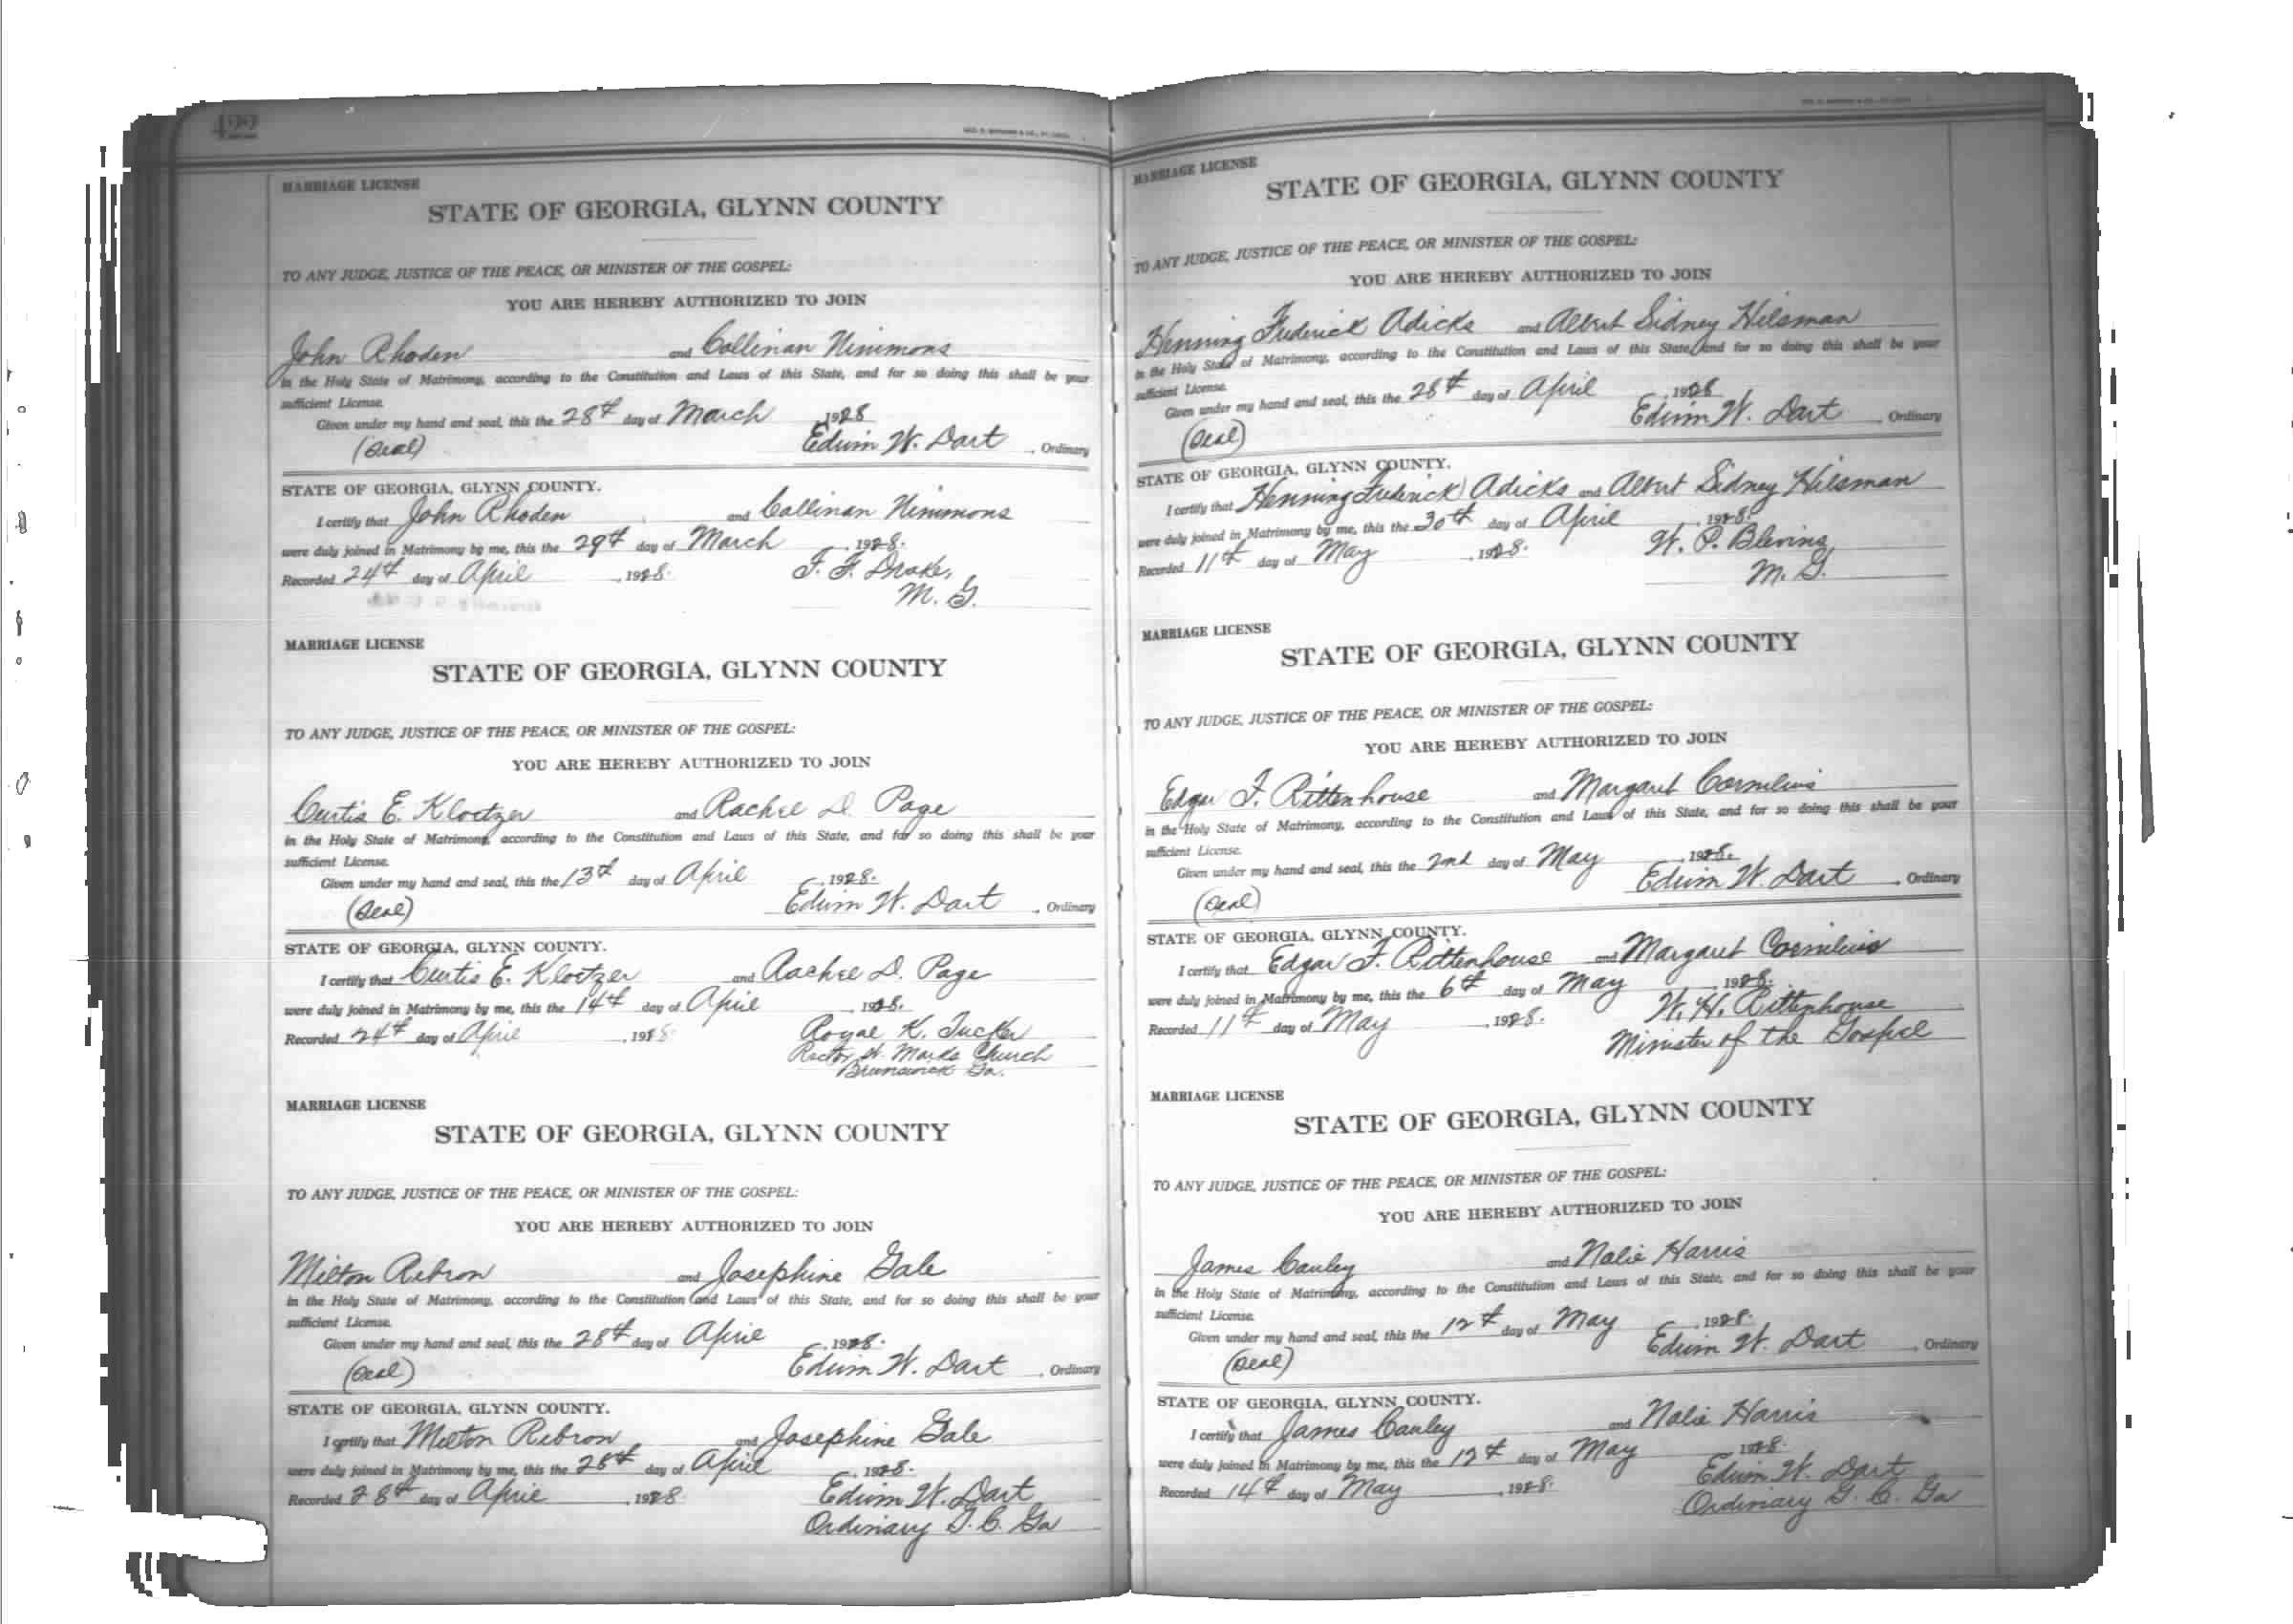 422
MARRIAGE LICENSE
STATE OF GEORGIA, GLYNN COUNTY
TO ANY JUDGE, JUSTICE OF THE PEACE, OR MINISTER OF THE GOSPEL:
YOU ARE HEREBY AUTHORIZED TO JOIN
John Rhoden and Collinan Nimmons
in the Holy State of Matrimony, according to the Constitution and Laws of this State, and for so doing this shall be your
sufficient License.
Given under my hand and seal, this the 28th day of March , 1928
(Seal) Edwin W. Dart , Ordinary
STATE OF GEORGIA, GLYNN COUNTY.
I certify that John Rhoden and Collinan Nimmons
were duly joined in Matrimony by me, this the 29th day of March , 1928.
Recorded 24th day of April , 1928. F. F. Drake,
M. G.
MARRIAGE LICENSE
STATE OF GEORGIA, GLYNN COUNTY
TO ANY JUDGE, JUSTICE OF THE PEACE, OR MINISTER OF THE GOSPEL:
YOU ARE HEREBY AUTHORIZED TO JOIN
Curtis E. Klotzer and Rachel D. Page
in the Holy State of Matrimony, according to the Constitution and Laws of this State, and for so doing this shall be your
sufficient License.
Given under my hand and seal, this the 13th day of April , 1928.
(Seal) Edwin W. Dart , Ordinary
STATE OF GEORGIA, GLYNN COUNTY.
I certify that Curtis E. Klotzer and Rachel D. Page
were duly joined in Matrimony by me, this the 14th day of April , 1928.
Recorded 24th day of April , 1928 Royal K. Tucker
Rector St. Marks Church
Brunswick Ga.
MARRIAGE LICENSE
STATE OF GEORGIA, GLYNN COUNTY
TO ANY JUDGE, JUSTICE OF THE PEACE, OR MINISTER OF THE GOSPEL:
YOU ARE HEREBY AUTHORIZED TO JOIN
Milton Rebron and Josephine Gale
in the Holy State of Matrimony, according to the Constitution and Laws of this State, and for so doing this shall be your
sufficient License.
Given under my hand and seal, this the 28th day of April , 1928.
(Seal) Edwin W. Dart , Ordinary
STATE OF GEORGIA, GLYNN COUNTY.
I certify that Milton Rebron and Josephine Gale
were duly joined in Matrimony by me, this the 28th day of April , 1928.
Recorded 28th day of April , 1928 Edwin W. Dart
Ordinary G. C. Ga
MARRIAGE LICENSE
STATE OF GEORGIA, GLYNN COUNTY
TO ANY JUDGE, JUSTICE OF THE PEACE, OR MINISTER OF THE GOSPEL:
YOU ARE HEREBY AUTHORIZED TO JOIN
Henning Frederick Adicks and Albert Sidney Hilsman
in the Holy State of Matrimony, according to the Constitution and Laws of this State, and for so doing this shall be your
sufficient License.
Given under my hand and seal, this the 28th day of April , 1928
(Seal) Edwin W. Dart , Ordinary
STATE OF GEORGIA, GLYNN COUNTY.
I certify that Henning Frederick Adicks and Albert Sidney Hilsman
were duly joined in Matrimony by me, this the 30th day of April , 1928.
Recorded 11th day of May , 1928. W. P. Blevins,
M. G.
MARRIAGE LICENSE
STATE OF GEORGIA, GLYNN COUNTY
TO ANY JUDGE, JUSTICE OF THE PEACE, OR MINISTER OF THE GOSPEL:
YOU ARE HEREBY AUTHORIZED TO JOIN
Edgar F. Rittenhouse and Margaret Cornelius
in the Holy State of Matrimony, according to the Constitution and Laws of this State, and for so doing this shall be your
sufficient License.
Given under my hand and seal, this the 2nd day of May , 1928.
(Seal) Edwin W. Dart , Ordinary
STATE OF GEORGIA, GLYNN COUNTY.
I certify that Edgar F. Rittenhouse and Margaret Cornelius
were duly joined in Matrimony by me, this the 6th day of May , 1928.
Recorded 11th day of May , 1928. W. H. Rittenhouse
Minister of the Gospel
MARRIAGE LICENSE
STATE OF GEORGIA, GLYNN COUNTY
TO ANY JUDGE, JUSTICE OF THE PEACE, OR MINISTER OF THE GOSPEL:
YOU ARE HEREBY AUTHORIZED TO JOIN
James Cauley and Nalie Harris
in the Holy State of Matrimony, according to the Constitution and Laws of this State, and for so doing this shall be your
sufficient License.
Given under my hand and seal, this the 12th day of May , 1928.
(Seal) Edwin W. Dart , Ordinary
STATE OF GEORGIA, GLYNN COUNTY.
I certify that James Cauley and Nalie Harris
were duly joined in Matrimony by me, this the 12th day of May , 1928.
Recorded 14th day of May , 1928. Edwin W. Dart
Ordinary G. C. Ga